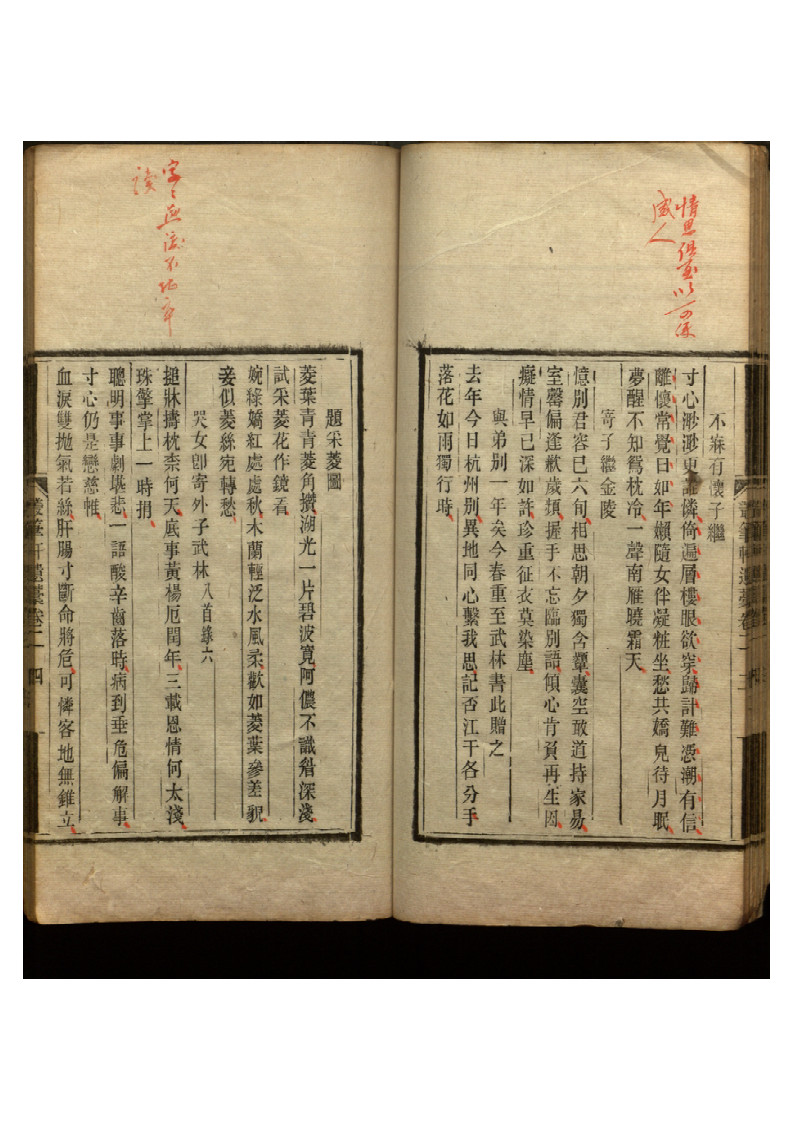 情思俱至
感人
不寐有懷子繼
寸心渺渺更誰憐倚遍層樓眼欲穿歸計難憑潮有信
離懷常覺日如年嬾隨女伴凝粧坐愁共嬌兒待月眠
夢醒不知鴛枕冷一聲南雁曉霜天
寄子繼金陵
憶別君容已六旬相思朝夕獨含顰囊空敢道持家易
室罄偏逢歉歲頻握手不忘臨別語傾心肯負再生因
癡情早已深如許珍重征衣莫染塵
與弟別一年矣今春重至武林書此贈之
去年今日杭州別異地同心繫我思記否江干各分手
落花如雨獨行時
字字血淚不堪卒
讀
題采菱圖
菱葉青青菱角攢湖光一片碧波寬阿儂不識愁深淺
試采菱花作鏡看
婉嬌紅處處秋木蘭輕泛水風柔歡如菱葉參差貌
妾似菱絲宛轉愁
哭女卽寄外子武林八首錄六
搥牀擣枕柰何天底事黃楊厄閏年三載恩情何太淺
珠擎掌上一時捐
聰明事事劇堪悲一語酸辛齒落時病到垂危偏解事
寸心仍是戀慈帷
血淚雙拋氣若絲肝腸寸斷命將危可憐客地無錐立
軒遺藁卷二 四